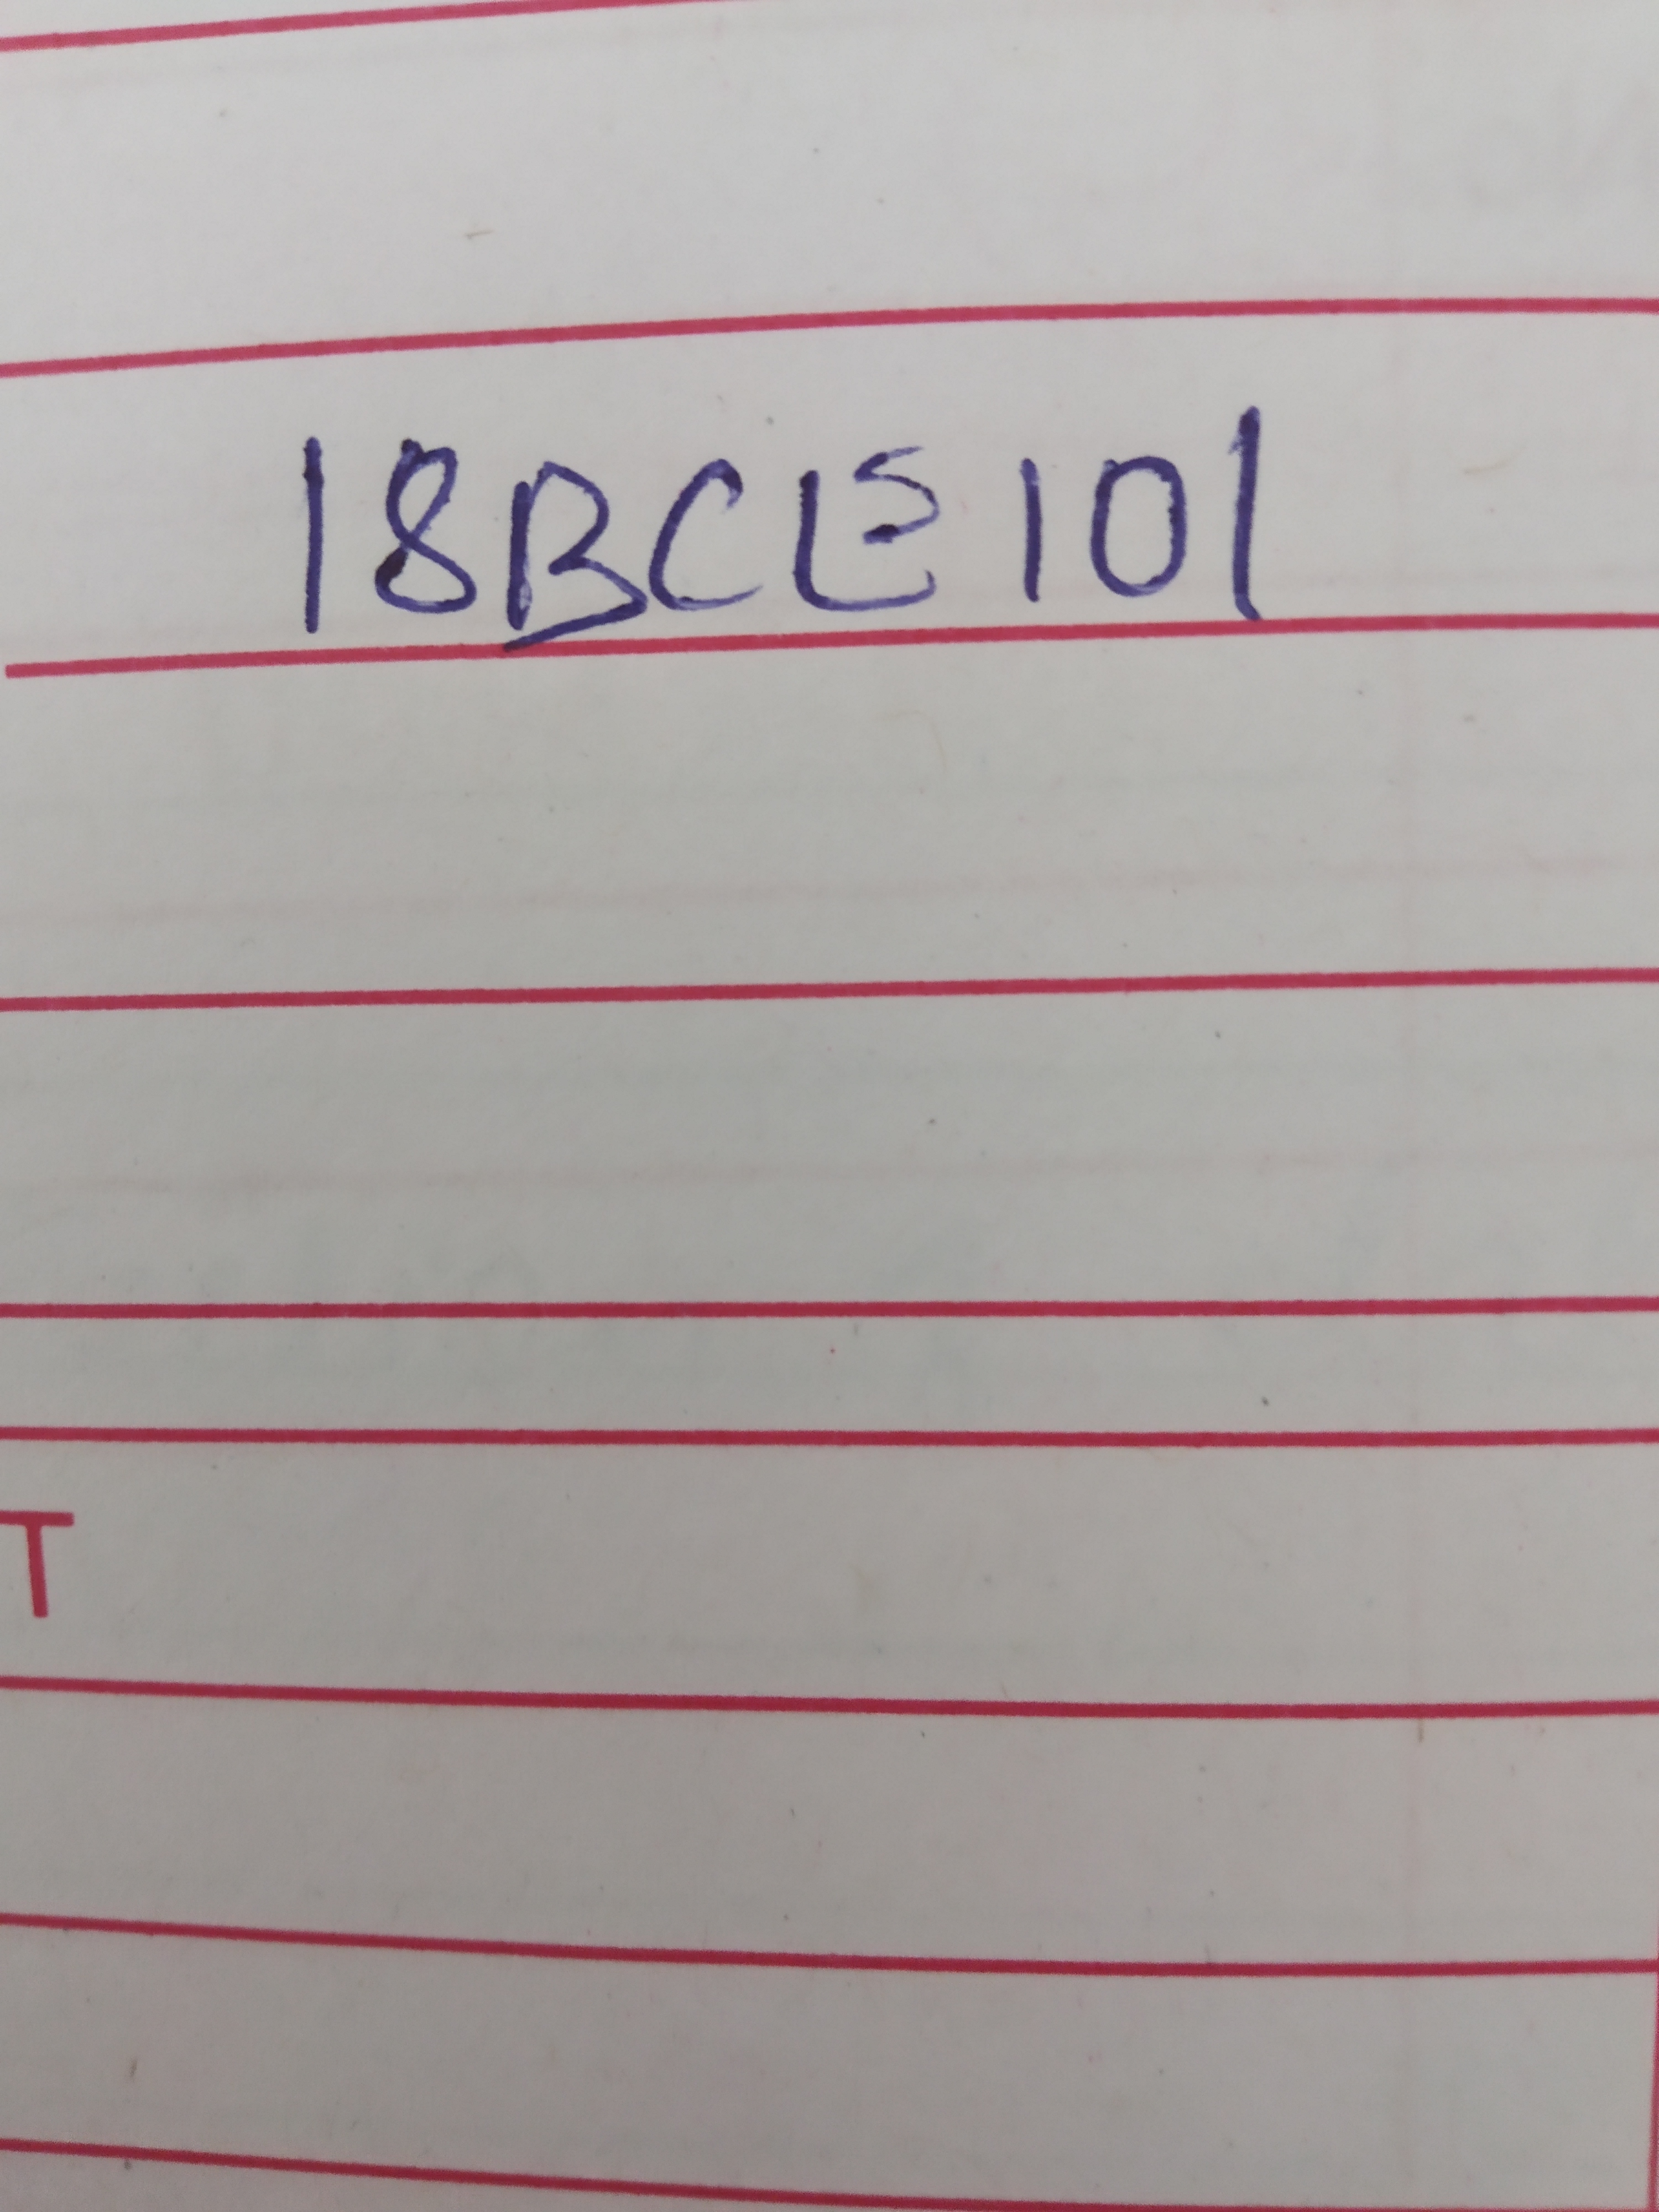 18BCE101
T